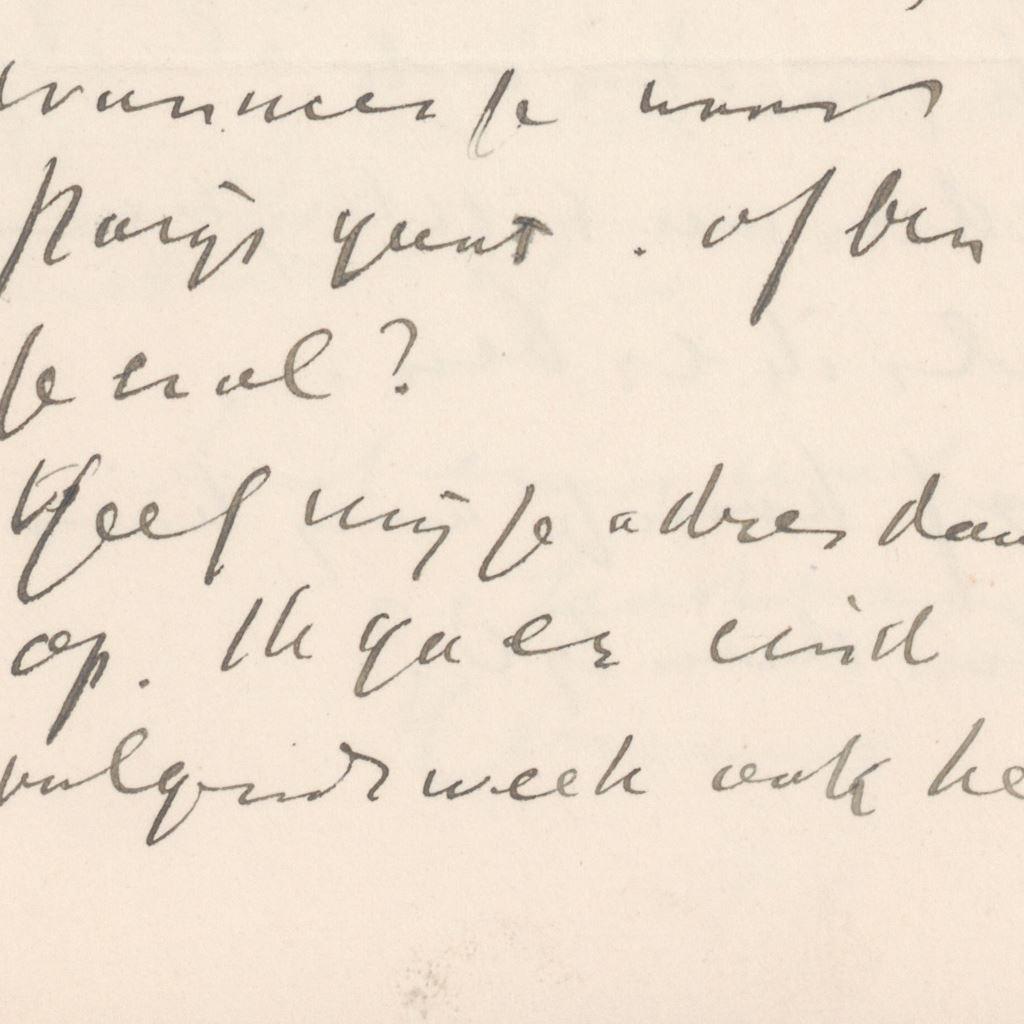 wanneer je naar
Parijs gaat. of ben
je er al?
Geef mij je adres dan
op. Ik ga er eind
volgende week ook he